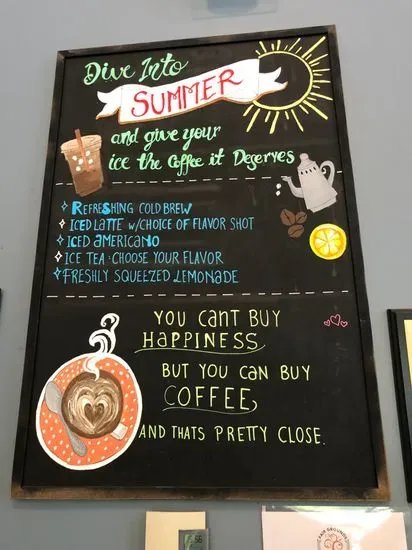 Dive Into
SUMMER
and give your
ice the Coffee it Deserves
REFRESHING COLD BREW
ICED LATTE W/CHOICE OF FLAVOR SHOT
ICED AMERICANO
ICE TEA: CHOOSE YOUR FLAVOR
FRESHLY SQUEEZED LEMONADE
YOU CANT BUY
HAPPINESS
BUT YOU CAN BUY
COFFEE
AND THATS PRETTY CLOSE.
GROUNDS